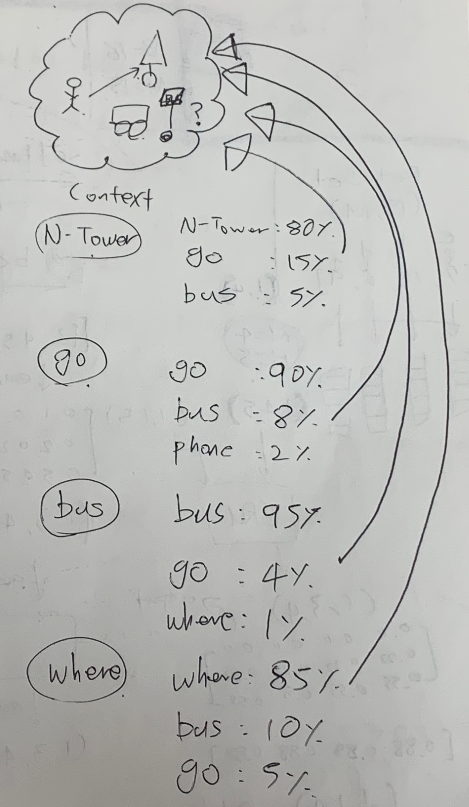 BUS
?
Context
N-Tower
N-Tower : 80%
go : 15%
bus : 5%
go
go : 90%
bus : 8%
phone : 2%
bus
bus : 95%
go : 4%
where : 1%
where
where : 85%
bus : 10%
go : 5%